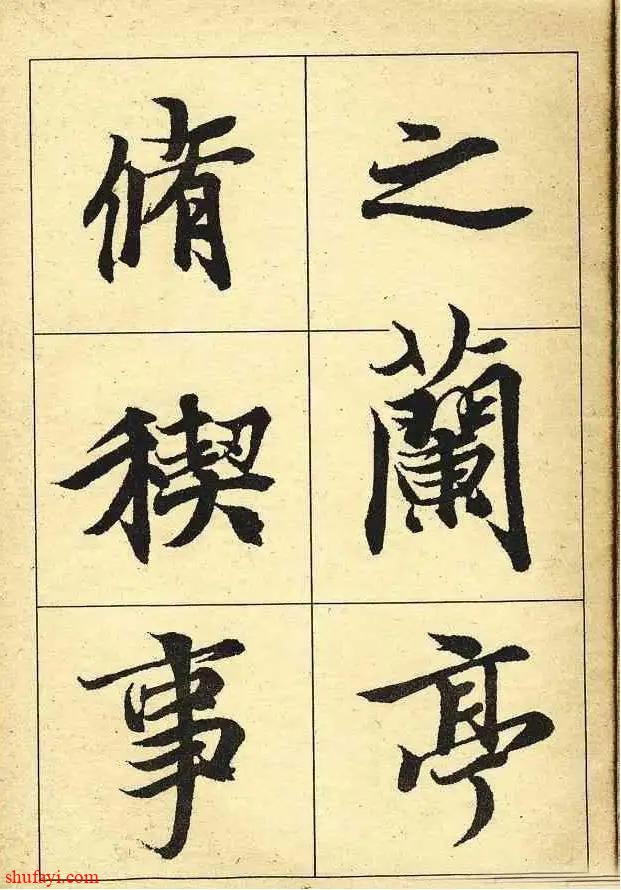 之蘭亭
脩稧事
shufayi.com